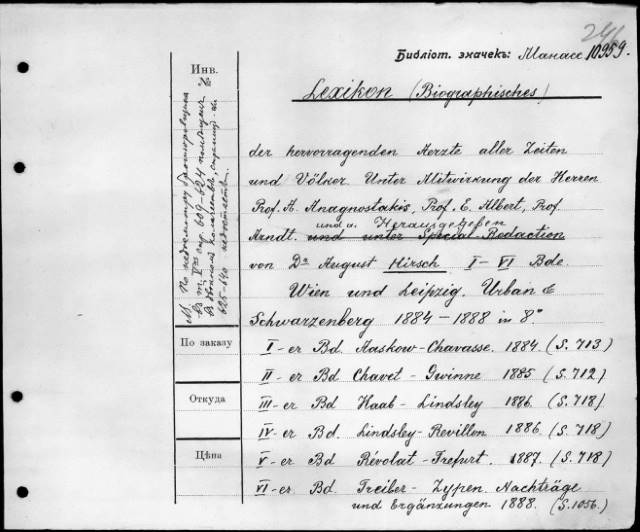 246
Библіот. значекъ: Манасс 10959.
Lexikon (Biographisches)
der hervorragenden Aerzte aller Zeiten
und Völker Unter Mitwirkung der Herren
Prof. A. Anagnostakis, Prof. E. Albert, Prof
und a. Herausgegeben
Arndt. und unter Special Redaction
von Dr August Hirsch I – VI Bde
Wien und Leipzig. Urban &
Schwarzenberg 1884 – 1888 in 8°
I-er Bd Aaskow-Chavasse. 1884. (S. 713)
II-er Bd Chavet - Gwinne 1885 (S. 712)
III-er Bd Haab - Lindsley 1886. (S. 718)
IV-er Bd. Lindsley-Revillon 1886 (S. 718)
V-er Bd Révolat-Trefurt. 1887. (S. 718)
VI-er Bd Treiber - Zypen. Nachträge
und Ergänzungen 1888. (S. 1056.)
Инв.
№
По недосмотру брошюровщика
въ т. V стр 609-624 помѣщены
въ двойномъ количествѣ, страниц
625-640 недостаетъ.
По заказу
Откуда
Цѣна